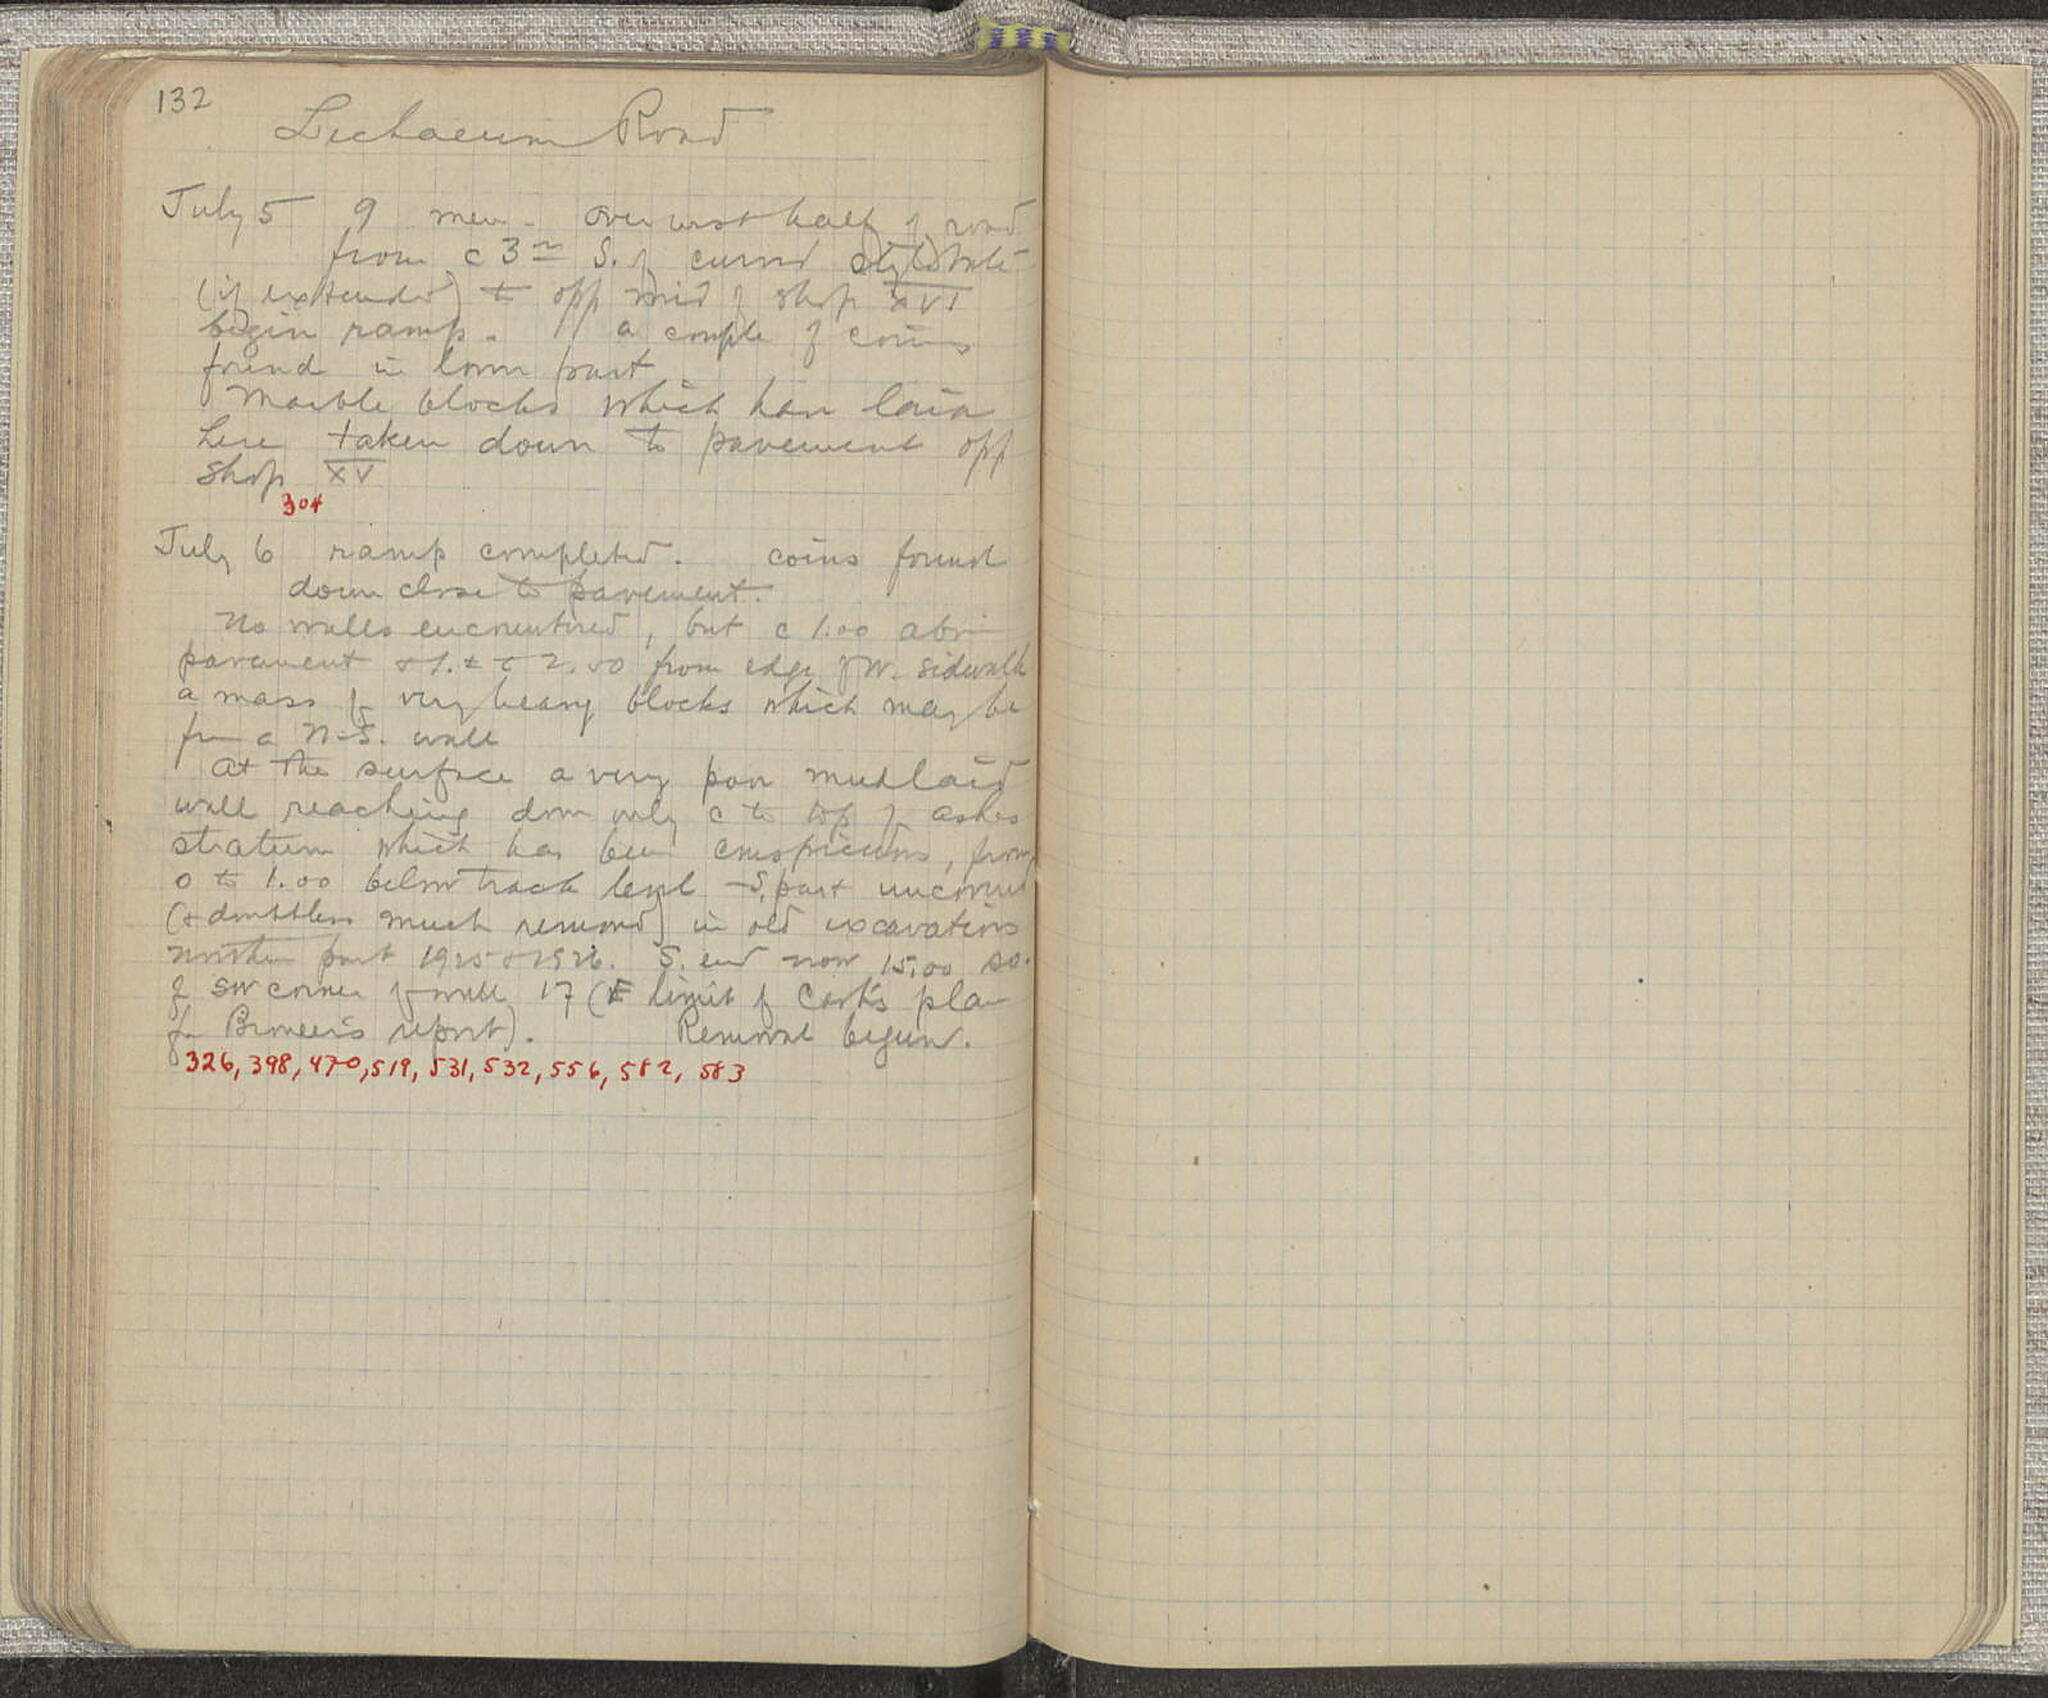 132
Lechaeum Road
July 5 9 men - over west half of road
from c 3m S. of curved stylobate
(if extended) to opp mid of shop XVI
begin ramp. a couple of coins
found in lower part
Marble blocks which have lain
here taken down to pavement opp
shop XV
304
July 6 ramp completed. coins found
down close to pavement.
No walls encountered, but c 1.00 above
pavement + 1. ± c 2.00 from edge of W. sidewalk
a mass of very heavy blocks which may be
from a N-S. wall
At the surface a very poor mudlaid
wall reaching down only c to top of ashes
stratum which has been conspicuous, from
0 to 1.00 below track level - S. part uncovered
(+ doubtless much removed) in old excavations
northern part 1925 + 1926. S. end now 15.00 so.
of SW corner of wall 17 (E limit of Cark's plan
for Broneer's report). Removal begun.
326, 398, 470, 519, 531, 532, 556, 582, 583